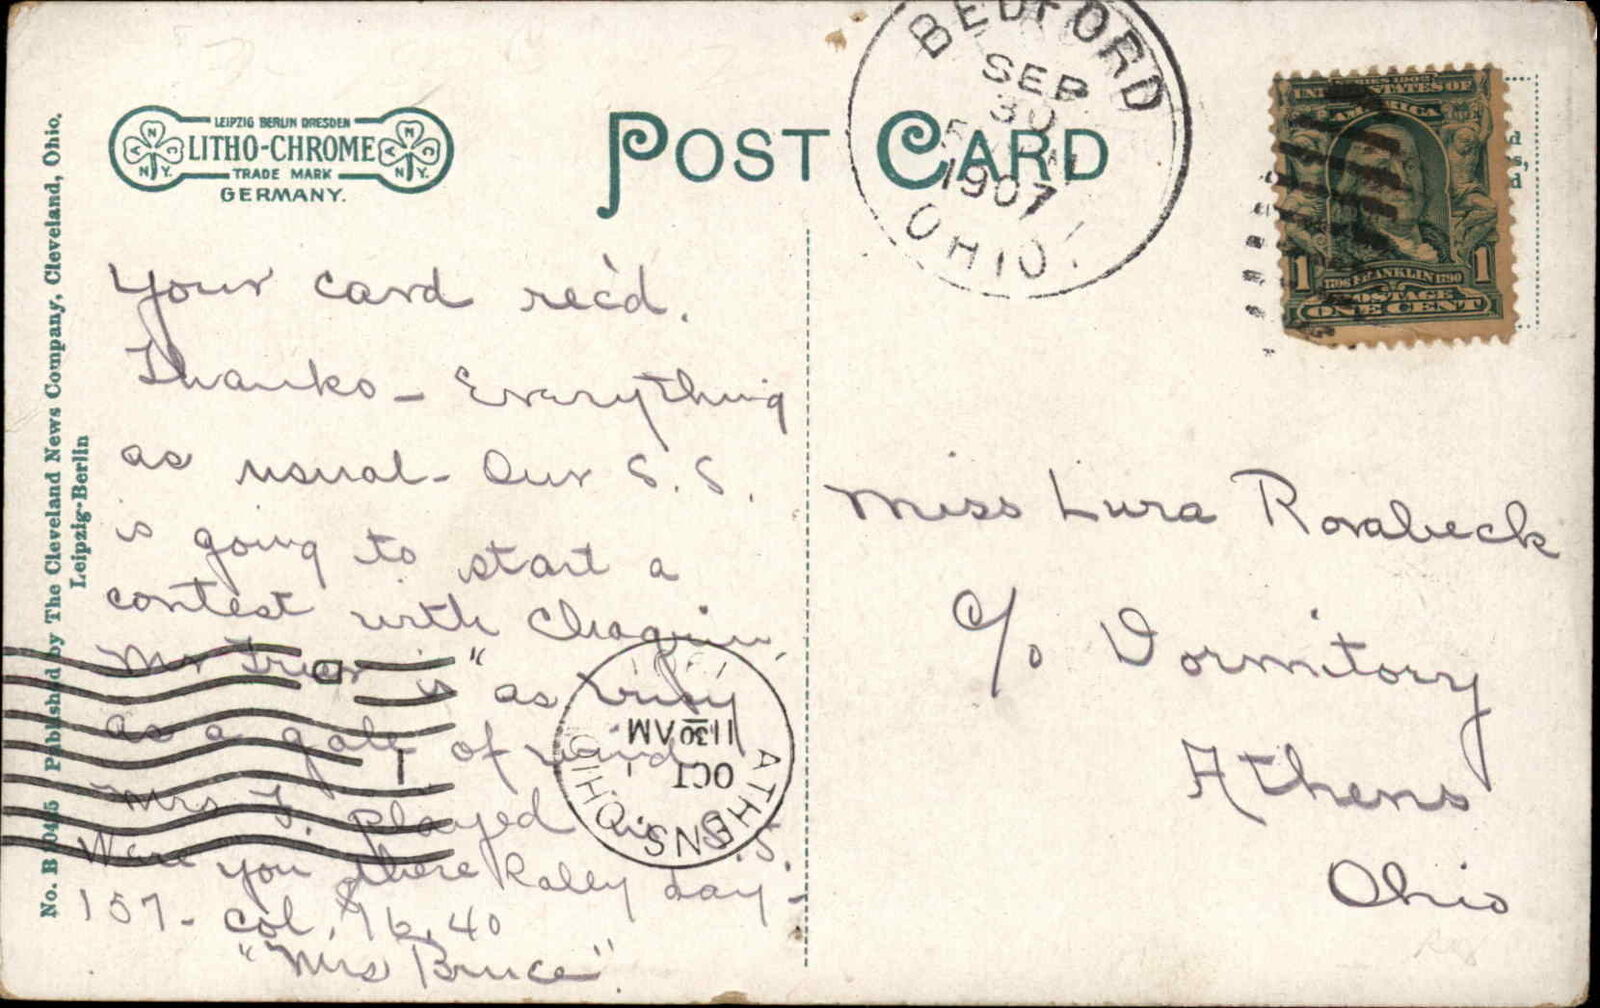 No. B 10445 Published by The Cleveland News Company, Cleveland, Ohio.
Leipzig-Berlin
LEIPZIG BERLIN DRESDEN
LITHO-CHROME
TRADE MARK
GERMANY.
POST CARD
BEDFORD
SEP
30
1907
OHIO.
SERIES 1902
UNITED STATES OF
AMERICA
1706 FRANKLIN 1790
1 1
POSTAGE
ONE CENT
Your card rec'd.
Thanks - Everything
as usual - Our S. S.
is going to start a
contest with Chagrin,
Mr is " as busy
as a gale of wind
Mrs F. played in S.S.
Were you there Rally day -
157 - Col. 40
"Mrs Bruce"
ATHENS
OCT 1
11 30 AM
OHIO
Miss Lura
c/o Dormitory
Athens
Ohio